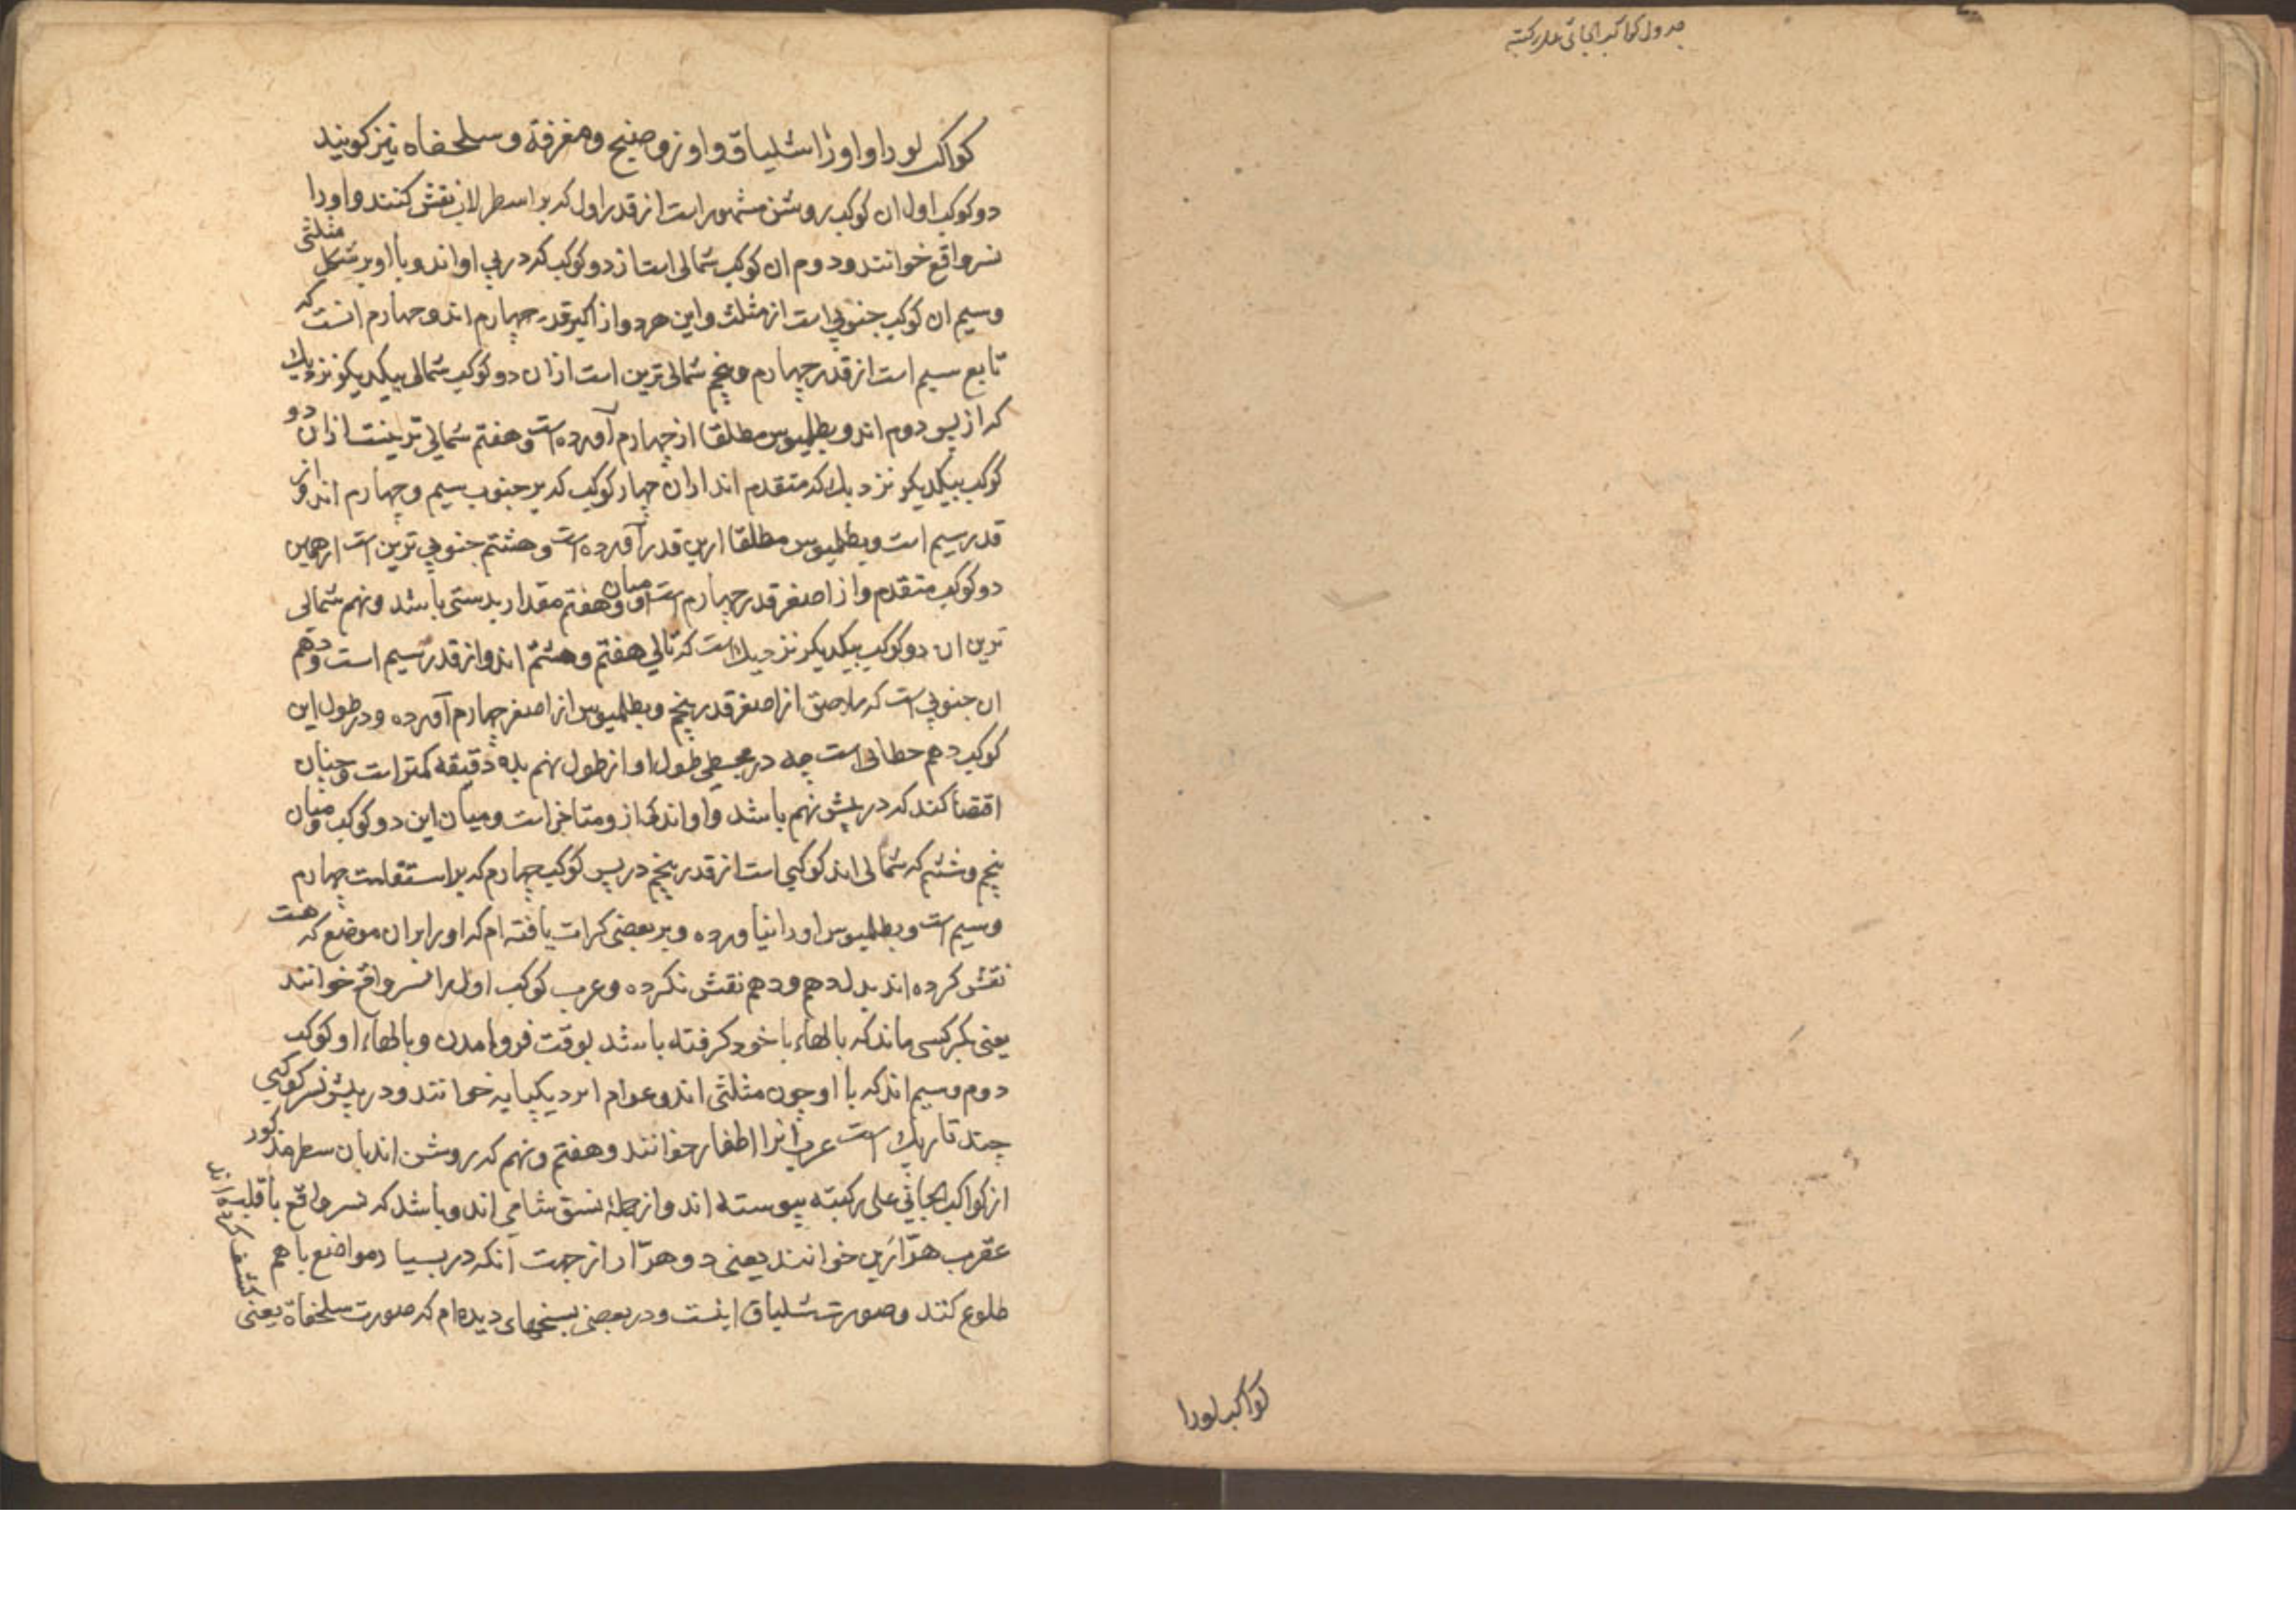 جدول کواکب الجاثی علی رکبته
کواکب لورا
کواکب لورا و اورا شلیاق و اوز و صنیج و مغرفة و سلحفاه نیز کویند
دو کوکب اول ان کوکب روشن مشهور است از قدر اول که بر اسطرلاب نقش کنند و او را
نسر واقع خوانند و دوم ان کوکب شمالی است از دو کوکب که در پی او اند و با او بر شکل مثلثی
وسیم ان کوکب جنوبی است از مثلث و این هر دو از اکبر قدر چهارم اند و چهارم انست که
تابع سیم است از قدر چهارم و پنجم شمالی ترین است از ان دو کوکب شمالی بیکدیکر نزدیک
که از پس دوم اند و بطلمیوس مطلقا از چهارم آورده است و هفتم شمالی ترینست از ان دو
کوکب بیکدیکر نزدیک که متقدم اند از ان چهار کوکب که بر جنوب سیم و چهارم اند و از
قدر سیم است و بطلمیوس مطلقا ازین قدر آورده است و هشتم جنوبی ترین است از همین
دو کوکب متقدم و از اصغر قدر چهارم است و میان او و هفتم مقدار بدستی باشد و نهم شمالی
ترین ان دو کوکب بیکدیکر نزدیک است که تالی هفتم و هشتم اند و از قدر سیم است و دهم
ان جنوبی است که ملاصق از اصغر قدر پنجم و بطلمیوس از اصغر چهارم آورده و در طول این
کوکب دهم خطائی است چه در مجسطی طول او از طول نهم بده دقیقه کمتر است و چنان
اقتضا کند که در پیش نهم باشد و او اندکی ازو متاخر است و میان این دو کوکب و میان
پنجم و ششم که شمالی اند کوکبی است از قدر پنجم در پس کوکب چهارم که بر استقامت چهارم
وسیم است و بطلمیوس او را نیاورده و بر بعضی کرات یافته ام که او را بران موضع که هست
نقش کرده اند بدل دهم و دهم نقش نکرده و عرب کوکب اول را نسر واقع خوانند
یعنی بکرکسی ماند که بالهاء با خود کرفته باشد بوقت فرو امدن و بالهاء او کوکب
دوم و سیم اند که با او چون مثلثی اند و عوام انرا دیکپایه خوانند و در پیش نسر کوکبی
چند تاریک است عرب انرا اظفار خوانند و هفتم و نهم که روشن اند بان سطر مذکور
از کواکب الجاثی علی رکبته پیوسته اند و از جملهٔ نسق شامی اند و باشد که نسر واقع با قلب
عقرب هرّارَین خوانند یعنی دو هرّار از جهت آنکه در بسیار مواضع با هم
طلوع کنند و صورت شلیاق اینست و در بعضی نسخهای دیده ام که صورت سلحفاة یعنی
کشف کرده اند